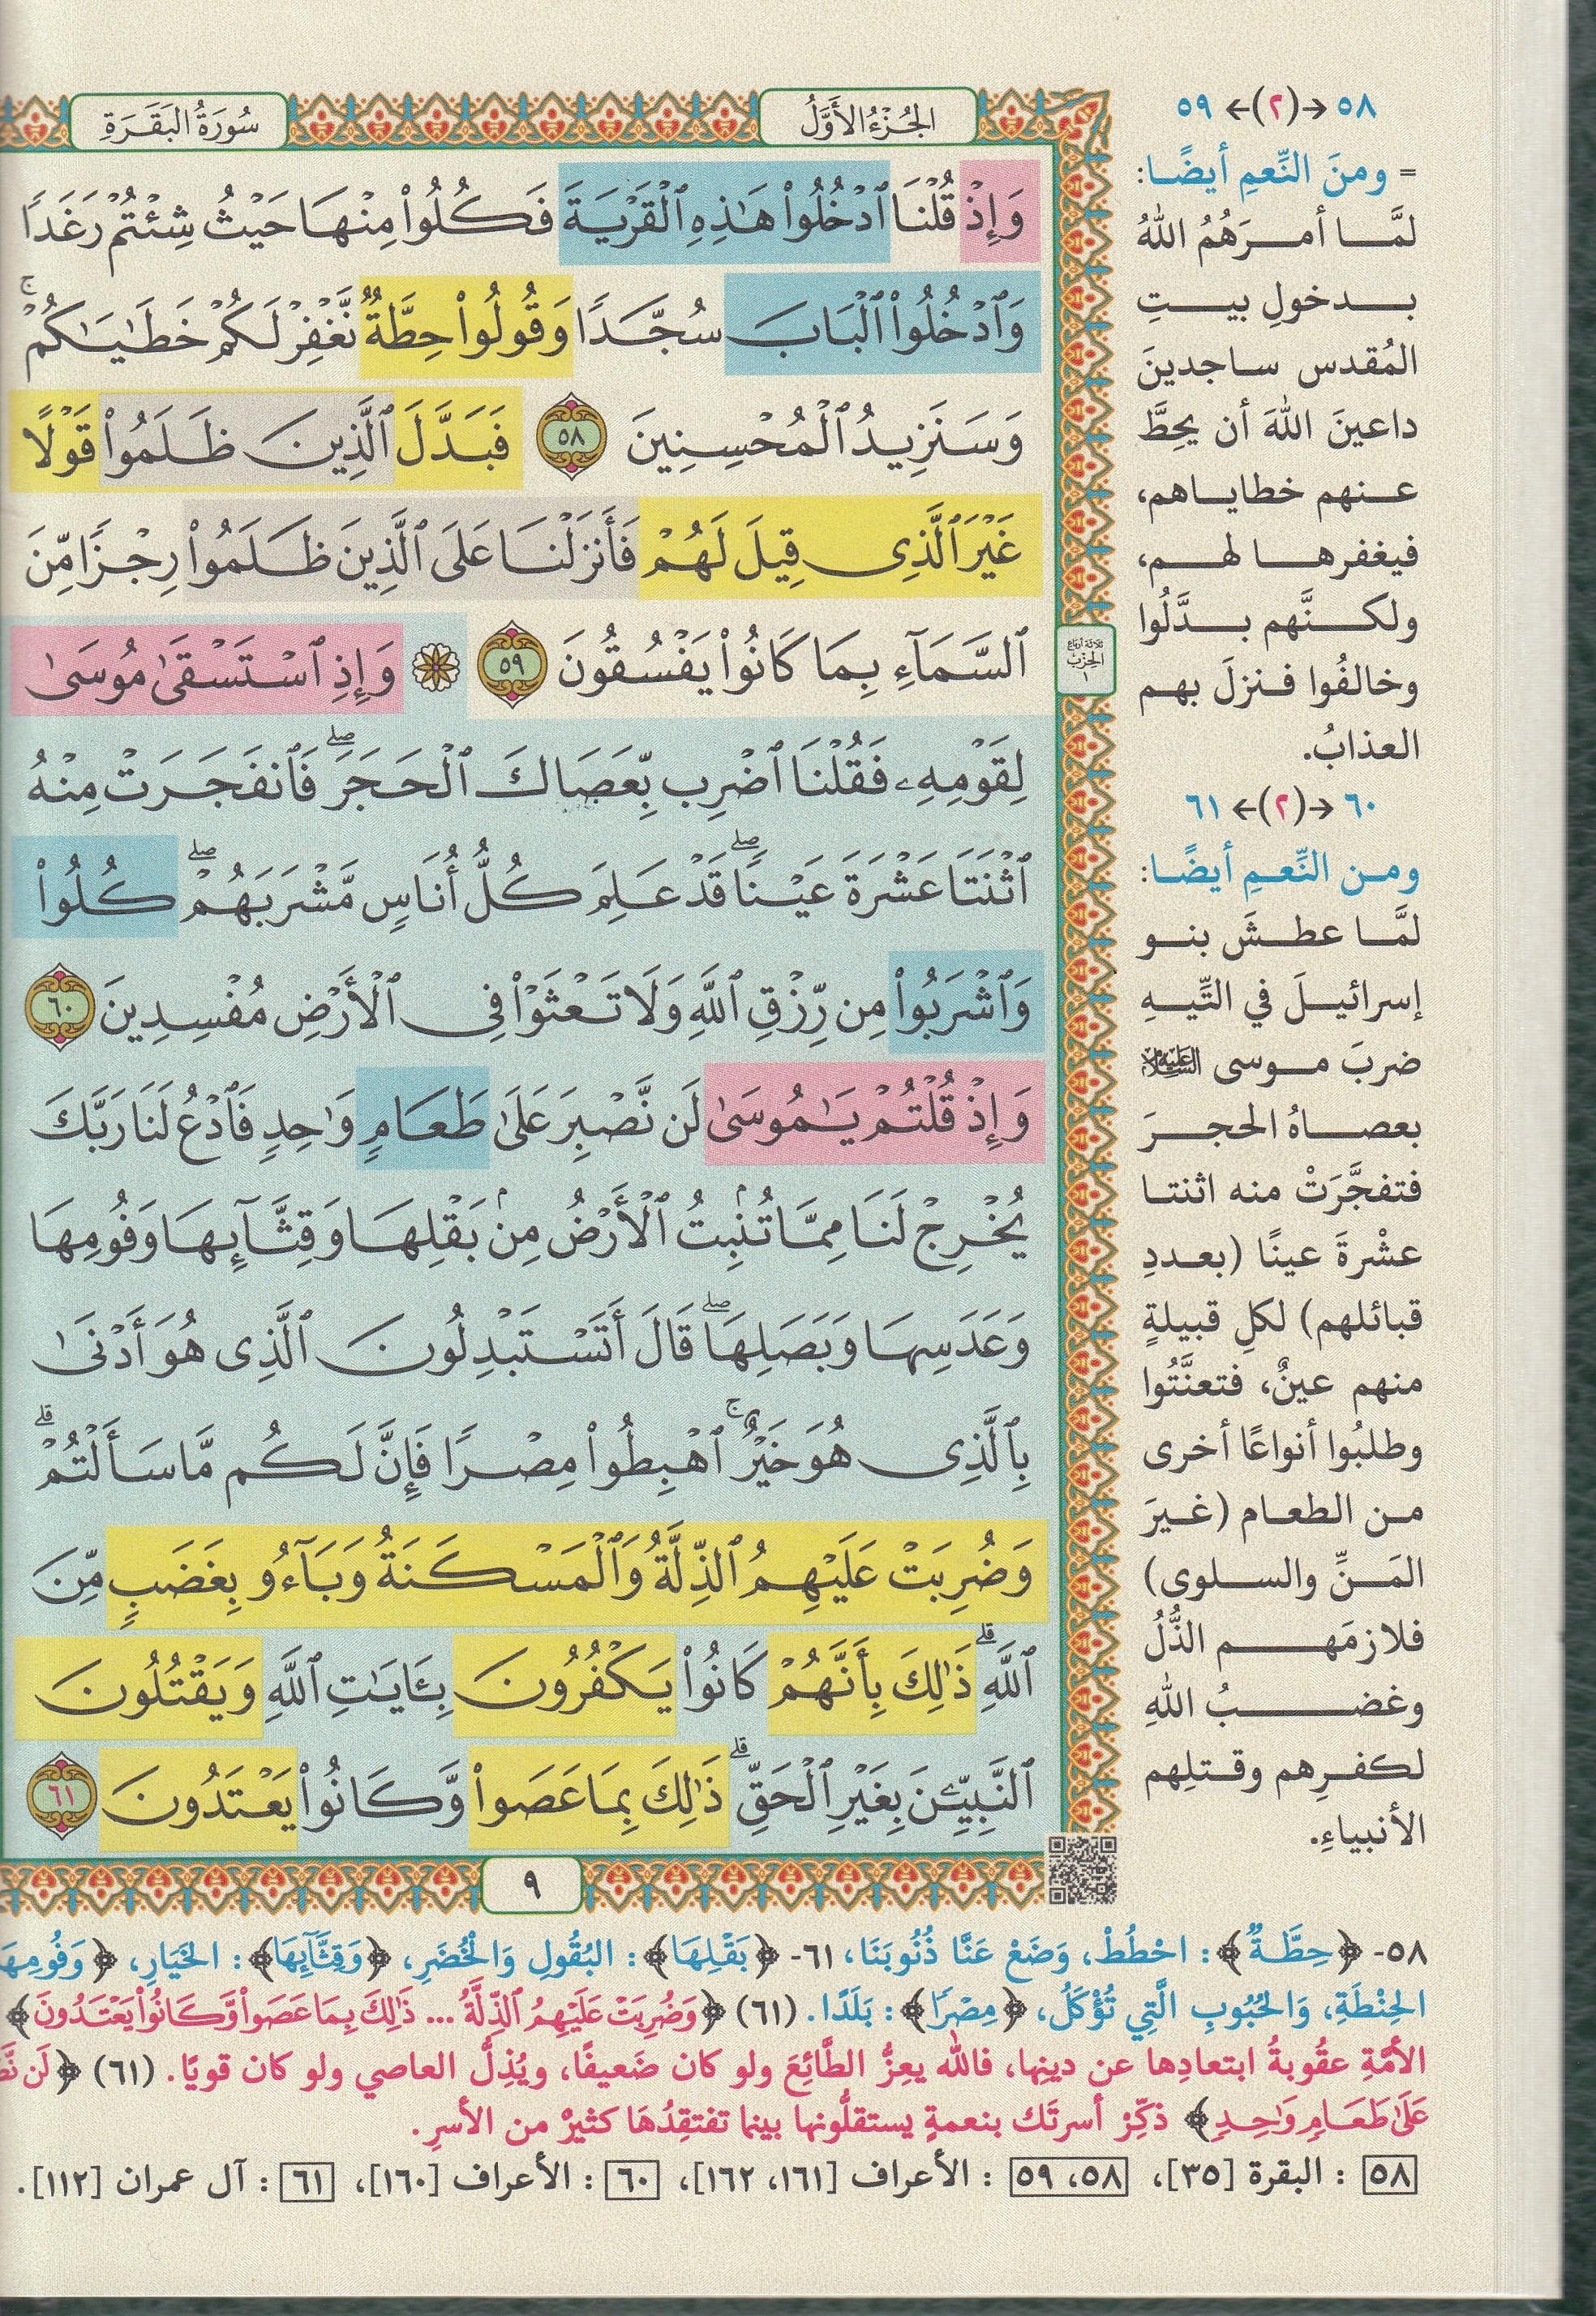 سُورَةُ البَقَرَةِ
الجُزْءُ الأَوَّلُ
وَإِذْ قُلْنَا ٱدْخُلُوا۟ هَـٰذِهِ ٱلْقَرْيَةَ فَكُلُوا۟ مِنْهَا حَيْثُ شِئْتُمْ رَغَدًا
وَٱدْخُلُوا۟ ٱلْبَابَ سُجَّدًا وَقُولُوا۟ حِطَّةٌ نَّغْفِرْ لَكُمْ خَطَـٰيَـٰكُمْ ۚ
وَسَنَزِيدُ ٱلْمُحْسِنِينَ ٥٨ فَبَدَّلَ ٱلَّذِينَ ظَلَمُوا۟ قَوْلًا
غَيْرَ ٱلَّذِى قِيلَ لَهُمْ فَأَنزَلْنَا عَلَى ٱلَّذِينَ ظَلَمُوا۟ رِجْزًا مِّنَ
ٱلسَّمَآءِ بِمَا كَانُوا۟ يَفْسُقُونَ ٥٩ ۞ وَإِذِ ٱسْتَسْقَىٰ مُوسَىٰ
لِقَوْمِهِۦ فَقُلْنَا ٱضْرِب بِّعَصَاكَ ٱلْحَجَرَ ۖ فَٱنفَجَرَتْ مِنْهُ
ٱثْنَتَا عَشْرَةَ عَيْنًا ۖ قَدْ عَلِمَ كُلُّ أُنَاسٍ مَّشْرَبَهُمْ ۖ كُلُوا۟
وَٱشْرَبُوا۟ مِن رِّزْقِ ٱللَّهِ وَلَا تَعْثَوْا۟ فِى ٱلْأَرْضِ مُفْسِدِينَ ٦٠
وَإِذْ قُلْتُمْ يَـٰمُوسَىٰ لَن نَّصْبِرَ عَلَىٰ طَعَامٍ وَٰحِدٍ فَٱدْعُ لَنَا رَبَّكَ
يُخْرِجْ لَنَا مِمَّا تُنۢبِتُ ٱلْأَرْضُ مِنۢ بَقْلِهَا وَقِثَّآئِهَا وَفُومِهَا
وَعَدَسِهَا وَبَصَلِهَا ۖ قَالَ أَتَسْتَبْدِلُونَ ٱلَّذِى هُوَ أَدْنَىٰ
بِٱلَّذِى هُوَ خَيْرٌ ۚ ٱهْبِطُوا۟ مِصْرًا فَإِنَّ لَكُم مَّا سَأَلْتُمْ ۗ
وَضُرِبَتْ عَلَيْهِمُ ٱلذِّلَّةُ وَٱلْمَسْكَنَةُ وَبَآءُو بِغَضَبٍ مِّنَ
ٱللَّهِ ۗ ذَٰلِكَ بِأَنَّهُمْ كَانُوا۟ يَكْفُرُونَ بِـَٔايَـٰتِ ٱللَّهِ وَيَقْتُلُونَ
ٱلنَّبِيِّـۧنَ بِغَيْرِ ٱلْحَقِّ ۗ ذَٰلِكَ بِمَا عَصَوا۟ وَّكَانُوا۟ يَعْتَدُونَ ٦١
ثلاثة أرباع
الحزب
١
٩
٥٨ ←(٢)→ ٥٩
= ومنَ النِّعمِ أيضًا:
لمَّا أمرَهُمُ اللهُ
بدخولِ بيتِ
المُقدس ساجدينَ
داعينَ اللهَ أن يحِطَّ
عنهم خطاياهم،
فيغفرها لهم،
ولكنَّهم بدَّلُوا
وخالفُوا فنزلَ بهم
العذابُ.
٦٠ ←(٢)→ ٦١
ومن النِّعمِ أيضًا:
لمَّا عطشَ بنو
إسرائيلَ في التِّيهِ
ضربَ موسى عليه السلام
بعصاهُ الحجرَ
فتفجَّرَتْ منه اثنتا
عشْرةَ عينًا (بعددِ
قبائلهم) لكلِ قبيلةٍ
منهم عينٌ، فتعنَّتُوا
وطلبُوا أنواعًا أخرى
من الطعام (غيرَ
المَنِّ والسلوى)
فلازمَهم الذُّلُ
وغضبُ اللهِ
لكفرِهم وقتلِهم
الأنبياءِ.
٥٨- ﴿حِطَّةٌ﴾: احْطُطْ، وَضَعْ عَنَّا ذُنُوبَنَا، ٦١- ﴿بَقْلِهَا﴾: البُقُولِ وَالْخُضَرِ، ﴿وَقِثَّآئِهَا﴾: الخَيَارِ، ﴿وَفُومِهَا
الحِنْطَةِ، وَالحُبُوبِ الَّتِي تُؤْكَلُ، ﴿مِصْرًا﴾: بَلَدًا. (٦١) ﴿وَضُرِبَتْ عَلَيْهِمُ ٱلذِّلَّةُ ... ذَٰلِكَ بِمَا عَصَوا۟ وَّكَانُوا۟ يَعْتَدُونَ﴾
الأمَّةِ عقُوبةُ ابتعادِها عن دينِها، فالله يعِزُّ الطَّائِعَ ولو كان ضَعيفًا، ويُذِلُّ العاصي ولو كان قويًا. (٦١) ﴿لَن
عَلَىٰ طَعَامٍ وَٰحِدٍ﴾ ذكِّرْ أسرتَك بنعمةٍ يستقلُّونها بينما تفتقِدُهَا كثيرٌ من الأسرِ.
٥٨ : البقرة [٣٥]، ٥٨، ٥٩ : الأعراف [١٦١، ١٦٢]، ٦٠ : الأعراف [١٦٠]، ٦١ : آل عمران [١١٢].